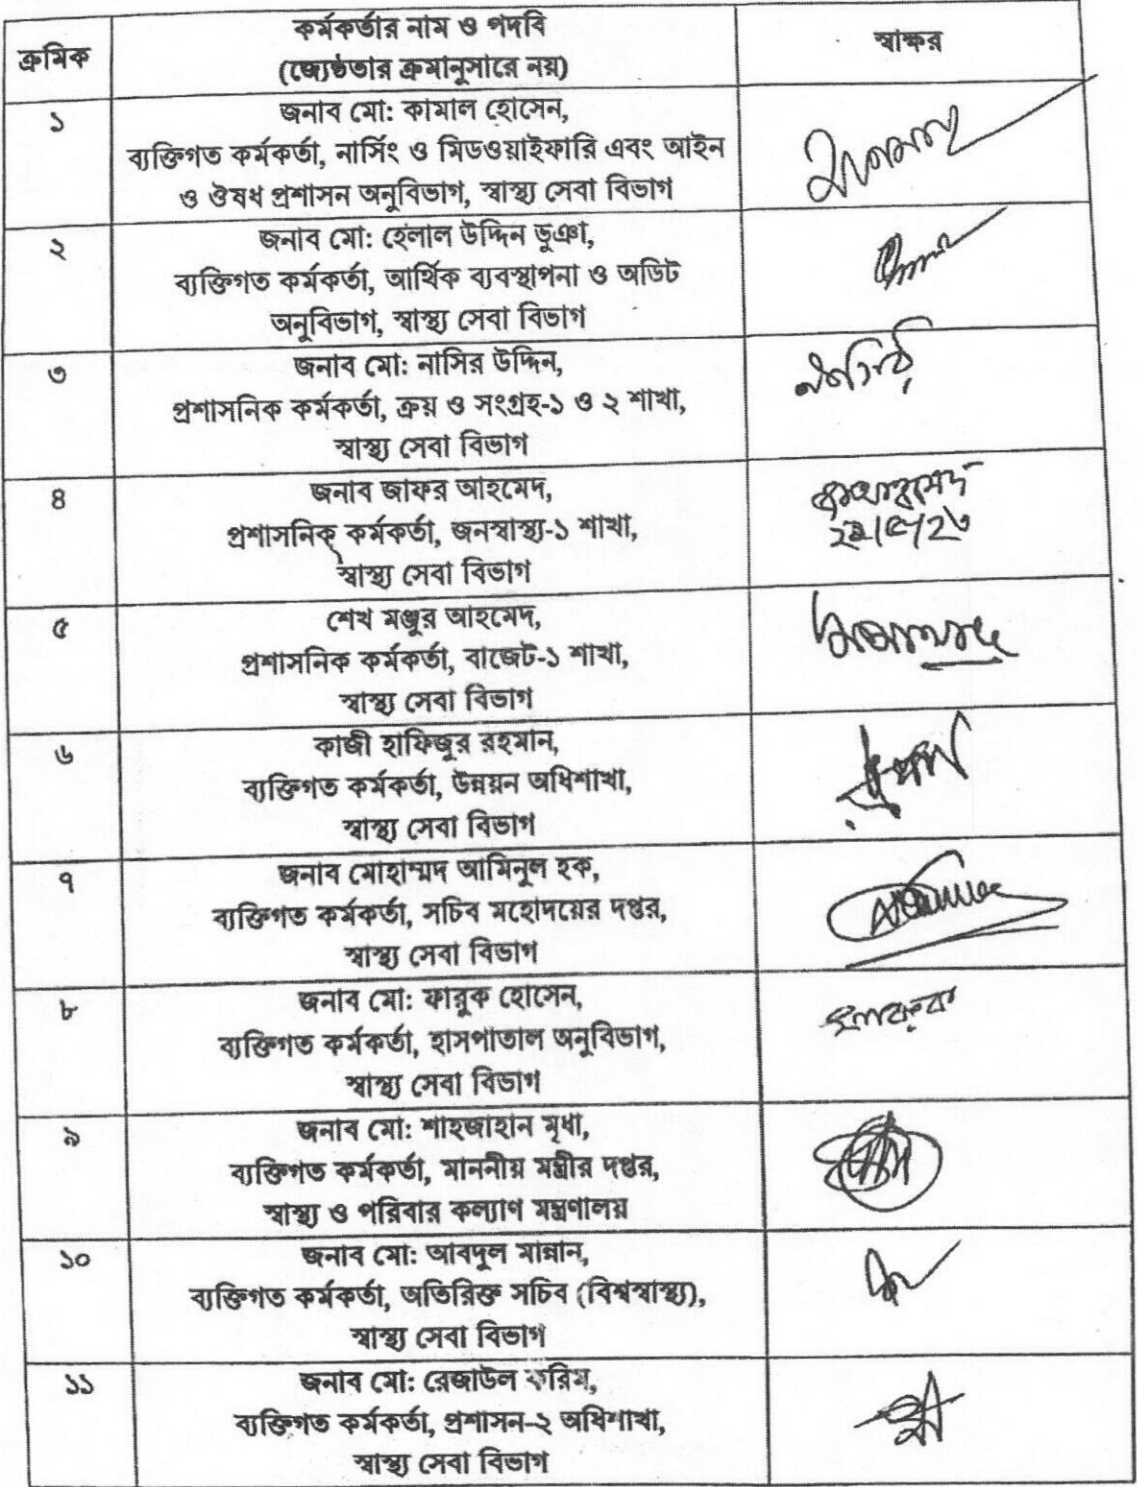 ক্রমিক
কর্মকর্তার নাম ও পদবি
(জ্যেষ্ঠতার ক্রমানুসারে নয়)
স্বাক্ষর
১
জনাব মো: কামাল হোসেন,
ব্যক্তিগত কর্মকর্তা, নার্সিং ও মিডওয়াইফারি এবং আইন
ও ঔষধ প্রশাসন অনুবিভাগ, স্বাস্থ্য সেবা বিভাগ
২
জনাব মো: হেলাল উদ্দিন ভুঞা,
ব্যক্তিগত কর্মকর্তা, আর্থিক ব্যবস্থাপনা ও অডিট
অনুবিভাগ, স্বাস্থ্য সেবা বিভাগ
৩
জনাব মো: নাসির উদ্দিন,
প্রশাসনিক কর্মকর্তা, ক্রয় ও সংগ্রহ-১ ও ২ শাখা,
স্বাস্থ্য সেবা বিভাগ
৪
জনাব জাফর আহমেদ,
প্রশাসনিক কর্মকর্তা, জনস্বাস্থ্য-১ শাখা,
স্বাস্থ্য সেবা বিভাগ
৫
শেখ মঞ্জুর আহমেদ,
প্রশাসনিক কর্মকর্তা, বাজেট-১ শাখা,
স্বাস্থ্য সেবা বিভাগ
৬
কাজী হাফিজুর রহমান,
ব্যক্তিগত কর্মকর্তা, উন্নয়ন অধিশাখা,
স্বাস্থ্য সেবা বিভাগ
৭
জনাব মোহাম্মদ আমিনুল হক,
ব্যক্তিগত কর্মকর্তা, সচিব মহোদয়ের দপ্তর,
স্বাস্থ্য সেবা বিভাগ
৮
জনাব মো: ফারুক হোসেন,
ব্যক্তিগত কর্মকর্তা, হাসপাতাল অনুবিভাগ,
স্বাস্থ্য সেবা বিভাগ
ফারুক
৯
জনাব মো: শাহজাহান মৃধা,
ব্যক্তিগত কর্মকর্তা, মাননীয় মন্ত্রীর দপ্তর,
স্বাস্থ্য ও পরিবার কল্যাণ মন্ত্রণালয়
১০
জনাব মো: আবদুল মান্নান,
ব্যক্তিগত কর্মকর্তা, অতিরিক্ত সচিব (বিশ্বস্বাস্থ্য),
স্বাস্থ্য সেবা বিভাগ
১১
জনাব মো: রেজাউল করিম,
ব্যক্তিগত কর্মকর্তা, প্রশাসন-২ অধিশাখা,
স্বাস্থ্য সেবা বিভাগ